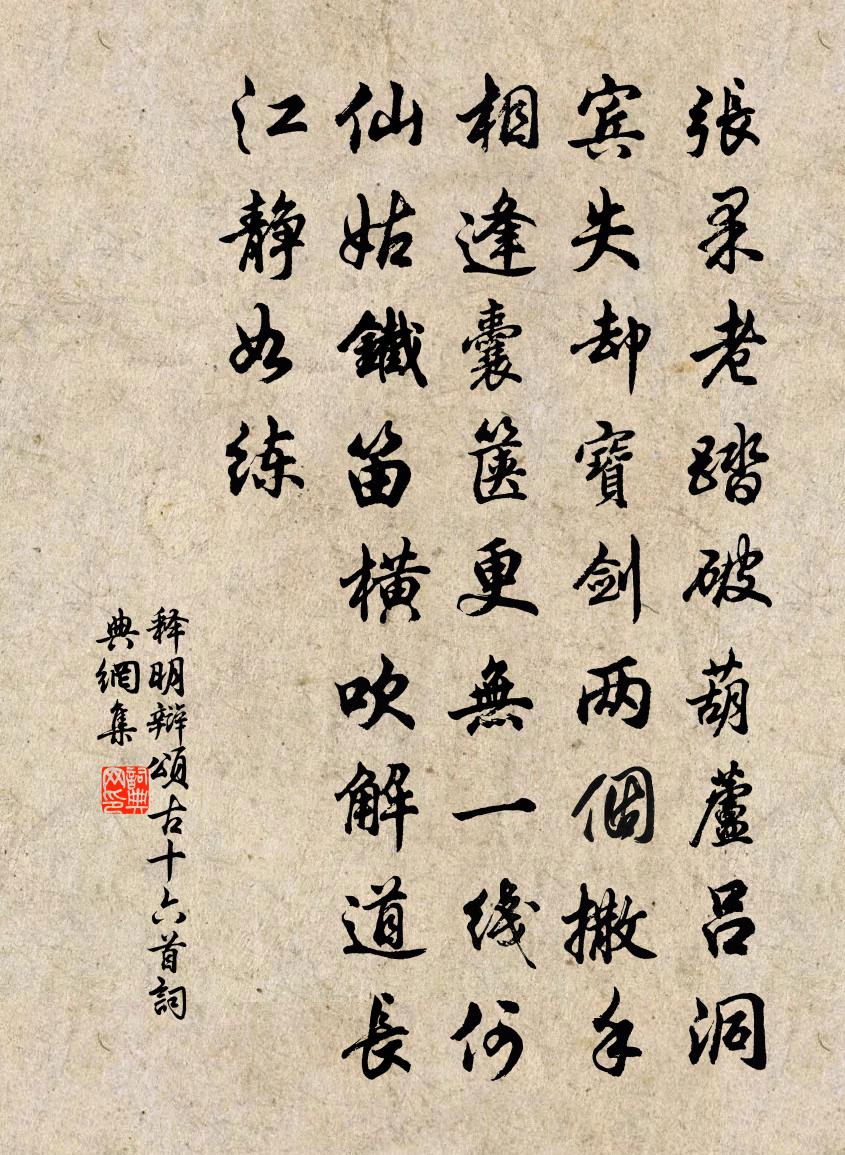 張果老踏破葫蘆吕洞
宾失却寶劍两個撒手
相逢囊箧更無一綫何
仙姑鐵笛橫吹解道長
江静如练
释明辯頌古十六首詞
典網集
詞典
网印